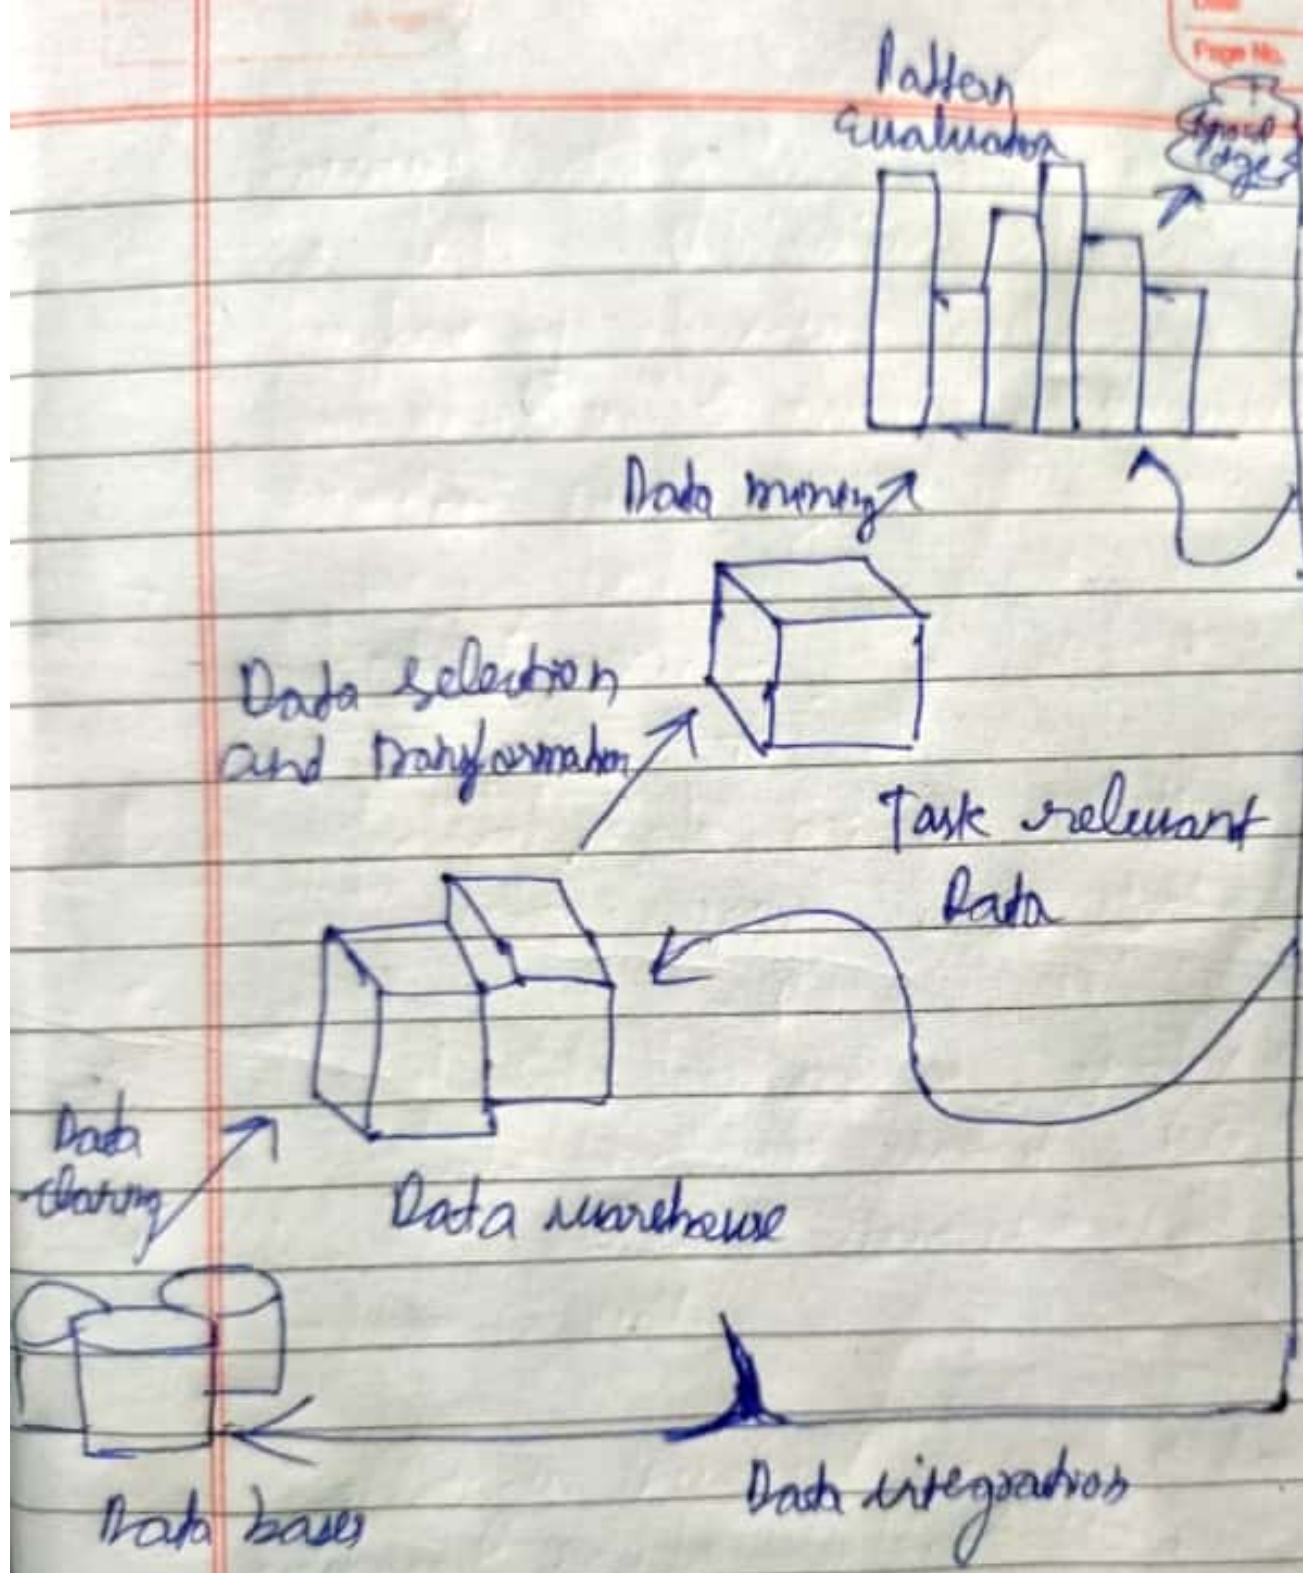 Page No.
Pattern
Evaluation
Knowl
edge
Data mining
Data selection
and Transformation
Task relevant
Data
Data
cleaning
Data warehouse
Data integration
Data bases